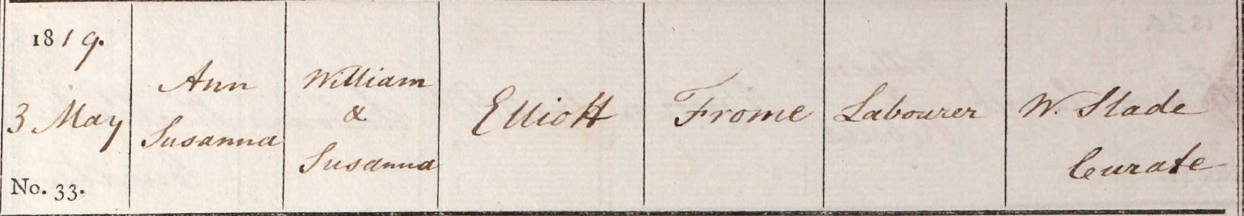 1819.
3 May
No. 33.
Ann
Susanna
William
&
Susanna
Elliott
Frome
Labourer
W. Slade
Curate